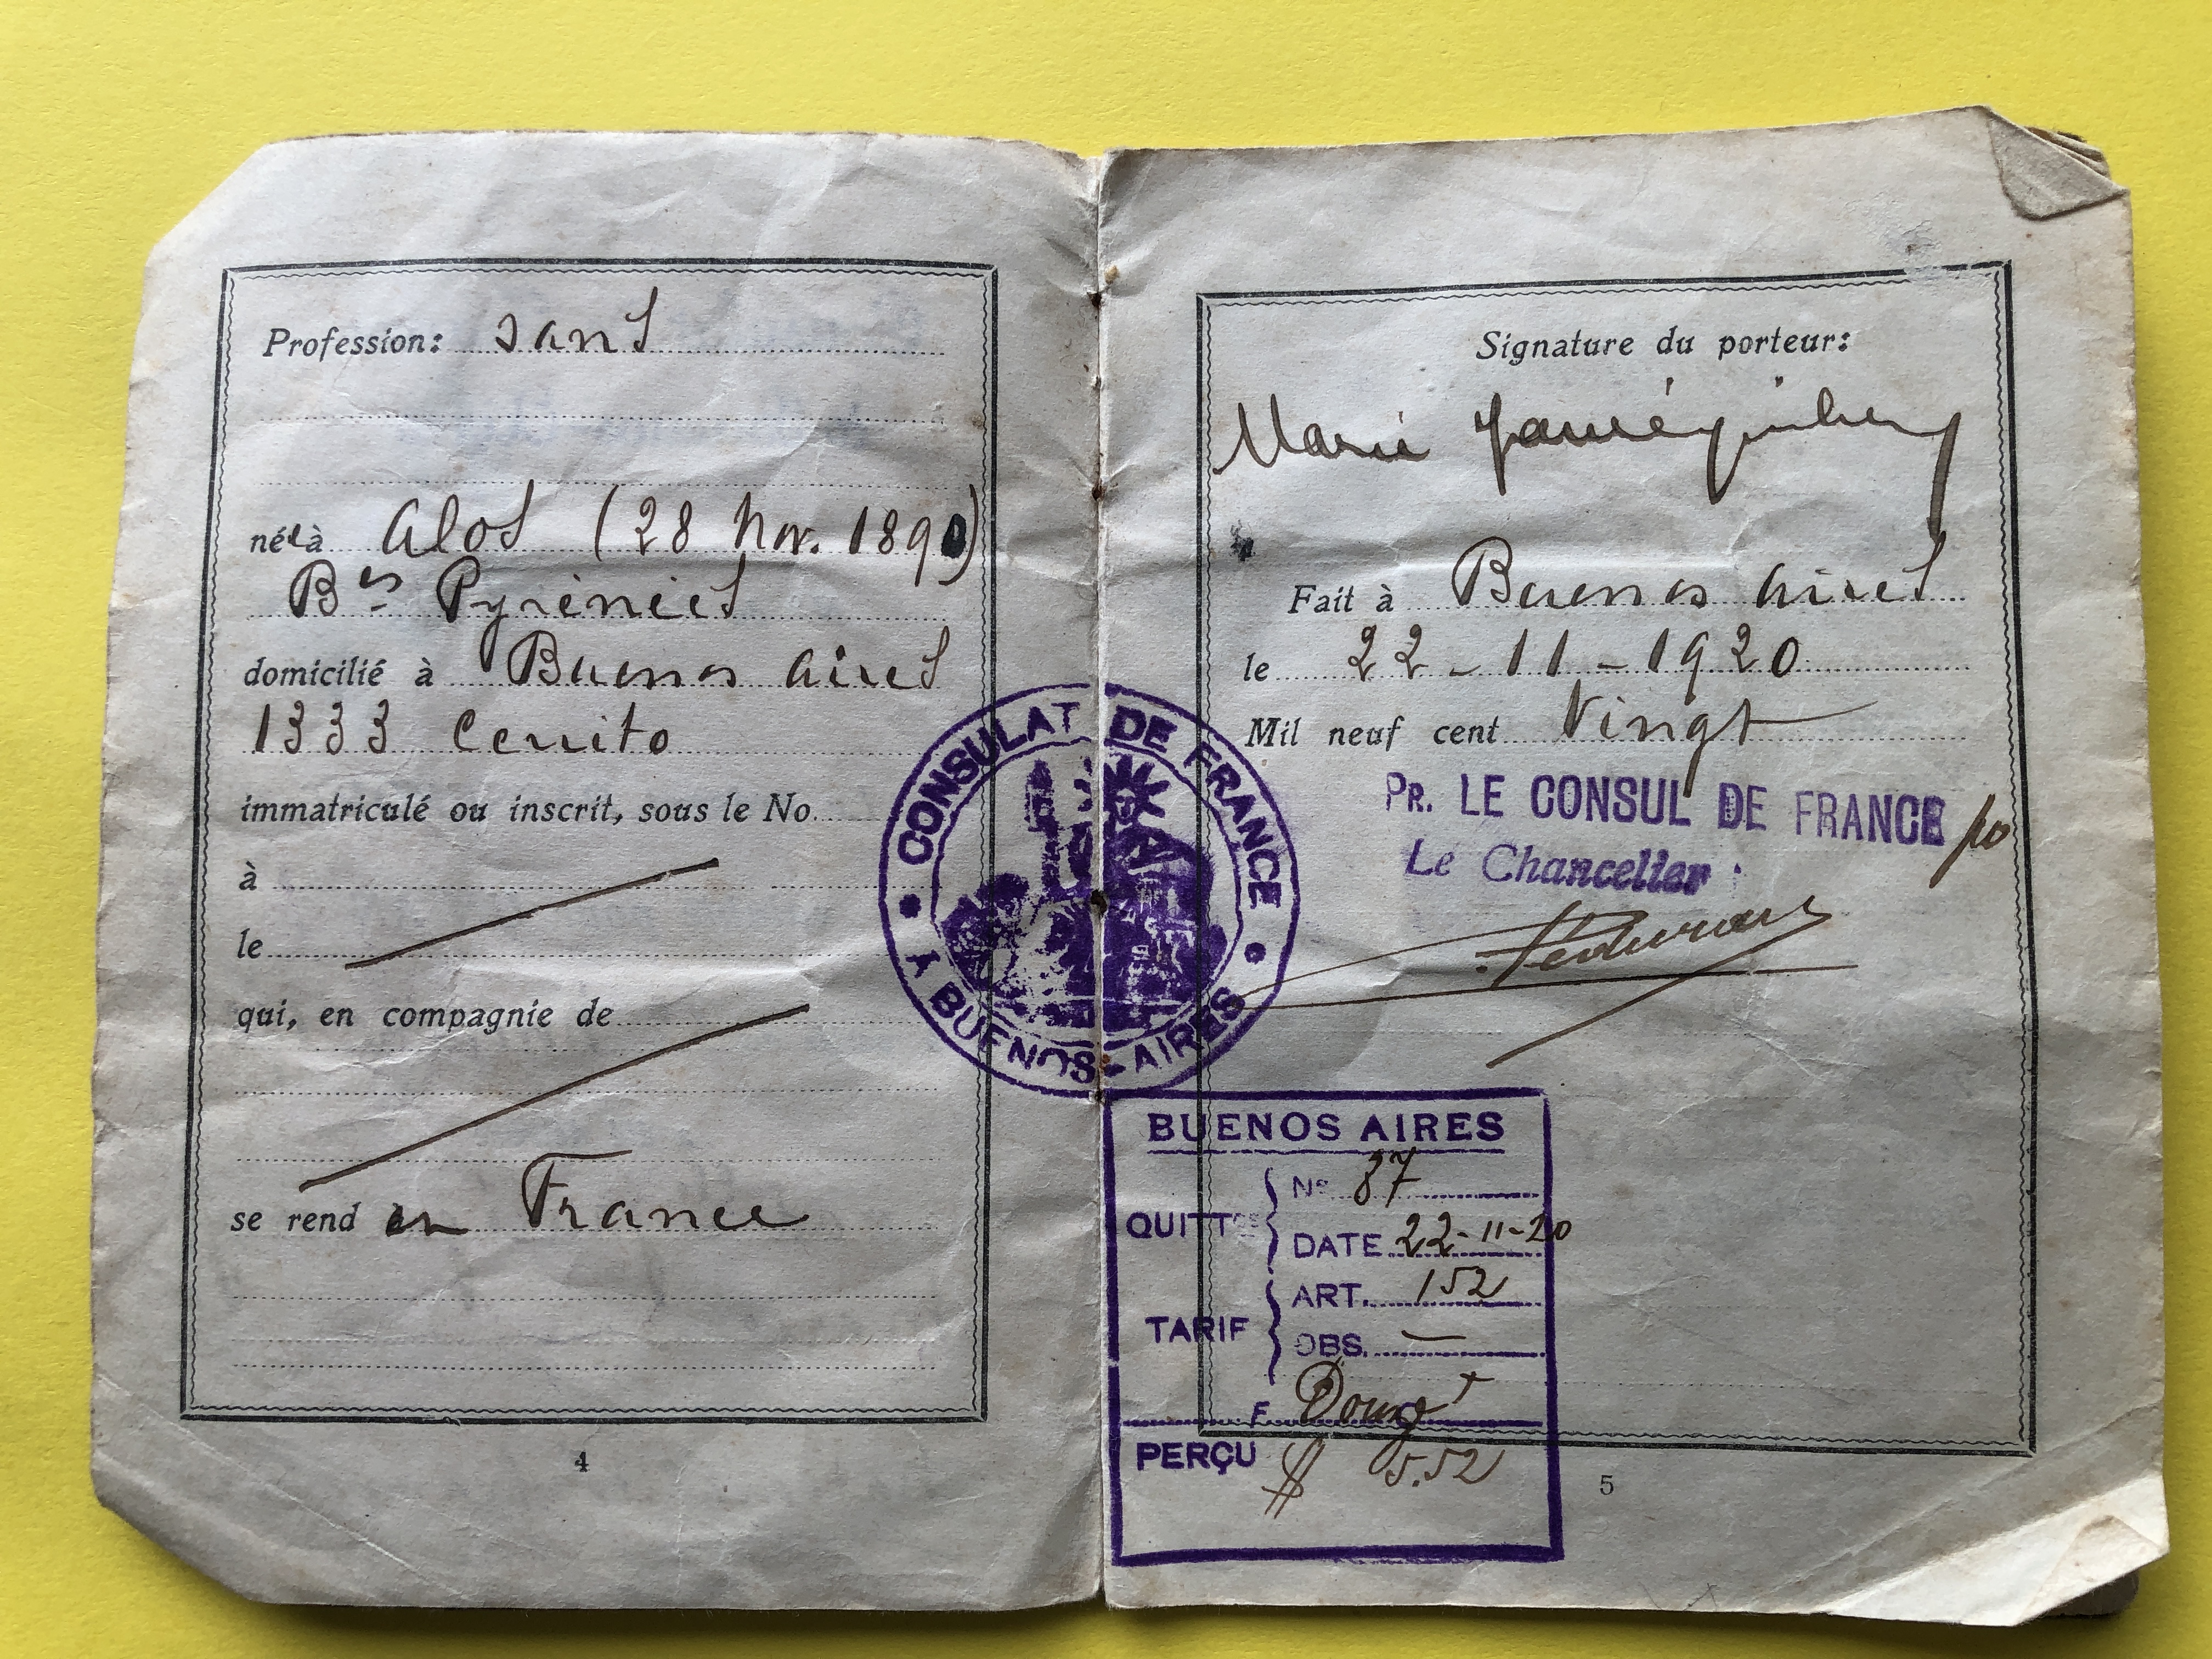 Profession: sans
née à Alos (28 Nov. 1890)
Bses Pyrénées
domicilié à Buenos Aires
1333 Cerrito
immatriculé ou inscrit, sous le No.
à
le
qui, en compagnie de
se rend en France
4
CONSULAT DE FRANCE
À BUENOS-AIRES
Signature du porteur:
Marie
Fait à Buenos Aires
le 22-11-1920
Mil neuf cent Vingt
PR. LE CONSUL DE FRANCE po
Le Chancelier:
BUENOS AIRES
QUITTCES
No 87
DATE 22-11-20
TARIF
ART. 152
OBS. —
F Douze
PERÇU $ 5.52
5